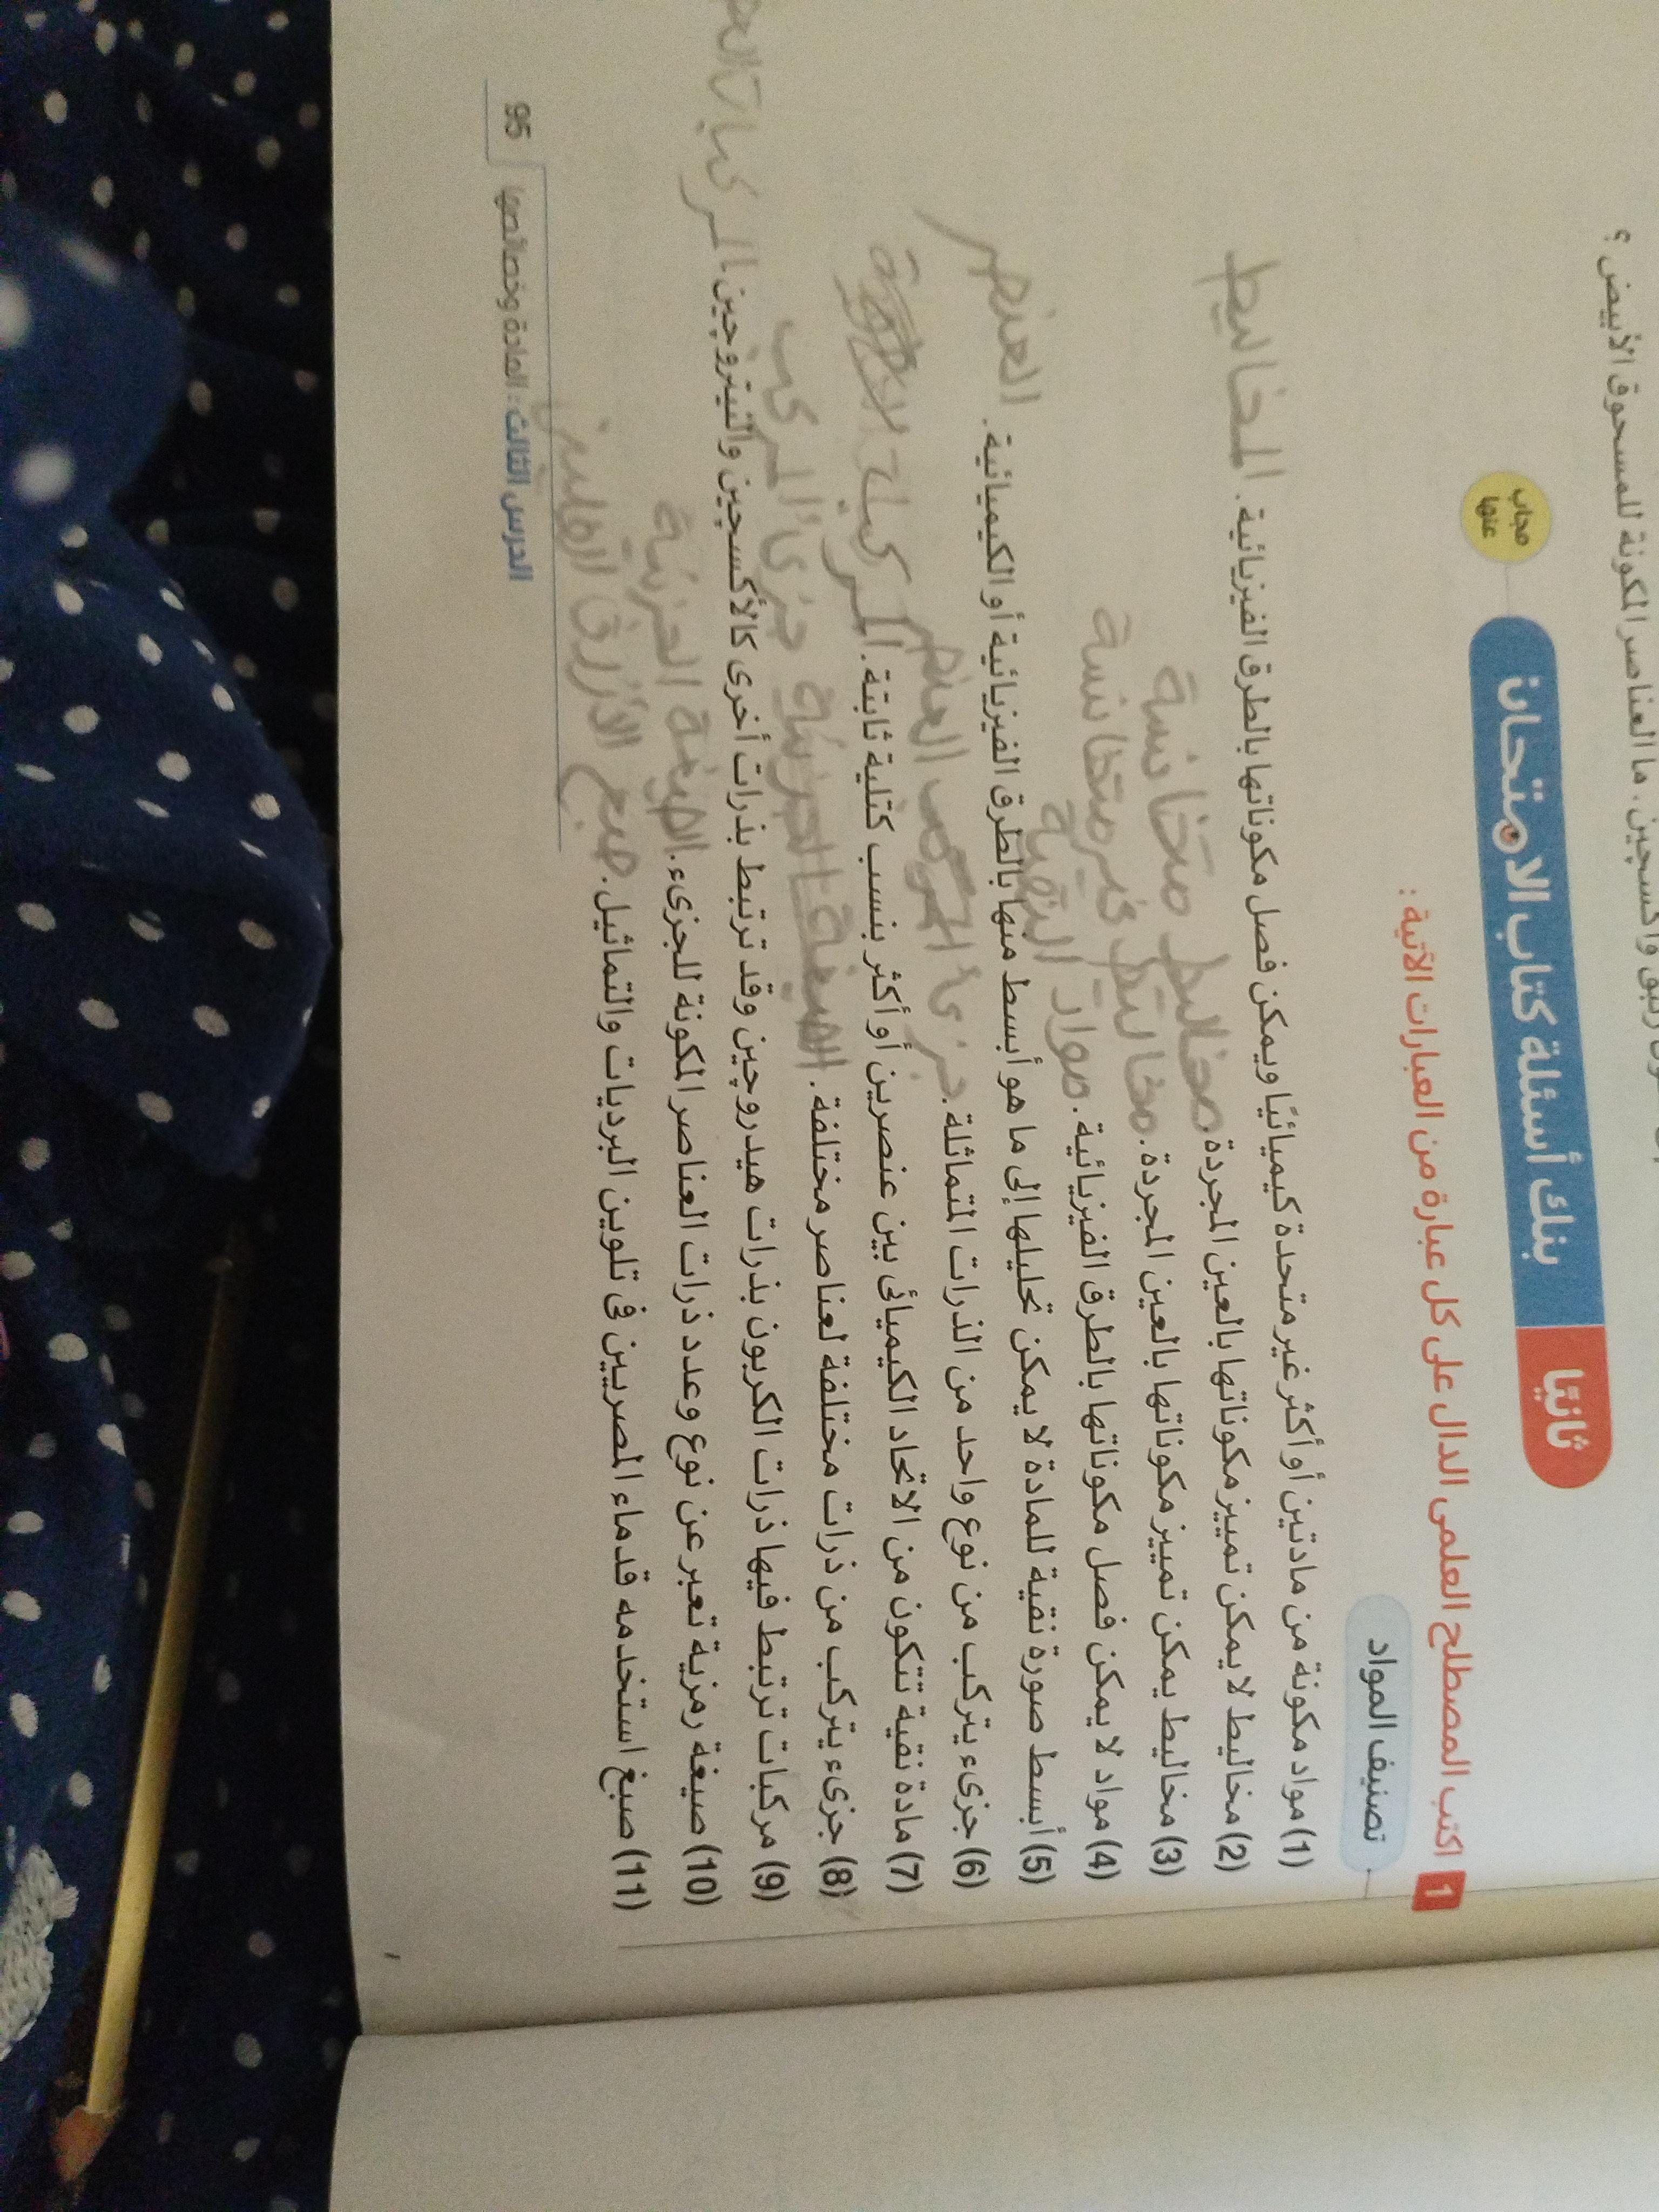 زئبق وأكسجين. ما العناصر المكونة للمسحوق الأبيض ؟
ثانيًا بنك أسئلة كتاب الامتحان مجاب عنها
1 اكتب المصطلح العلمى الدال على كل عبارة من العبارات الآتية :
تصنيف المواد
(1) مواد مكونة من مادتين أو أكثر غير متحدة كيميائيًا ويمكن فصل مكوناتها بالطرق الفيزيائية. المخاليط
(2) مخاليط لا يمكن تمييز مكوناتها بالعين المجردة. مخاليط متجانسة
(3) مخاليط يمكن تمييز مكوناتها بالعين المجردة. مخاليط غير متجانسة
(4) مواد لا يمكن فصل مكوناتها بالطرق الفيزيائية. مواد النقية
(5) أبسط صورة نقية للمادة لا يمكن تحليلها إلى ما هو أبسط منها بالطرق الفيزيائية أو الكيميائية. العنصر
(6) جزىء يتركب من نوع واحد من الذرات المتماثلة. جزىء العنصر
(7) مادة نقية تتكون من الاتحاد الكيميائى بين عنصرين أو أكثر بنسب كتلية ثابتة. المركبات
(8) جزىء يتركب من ذرات مختلفة لعناصر مختلفة. جزىء المركب
(9) مركبات ترتبط فيها ذرات الكربون بذرات هيدروچين وقد ترتبط بذرات أخرى كالأكسچين والنيتروچين. المركبات
(10) صيغة رمزية تعبر عن نوع وعدد ذرات العناصر المكونة للجزىء. الصيغة الجزيئية
(11) صبغ استخدمه قدماء المصريين فى تلوين البرديات والتماثيل. صبغ الأزرق
95 الدرس الثالث : المادة وخصائصها